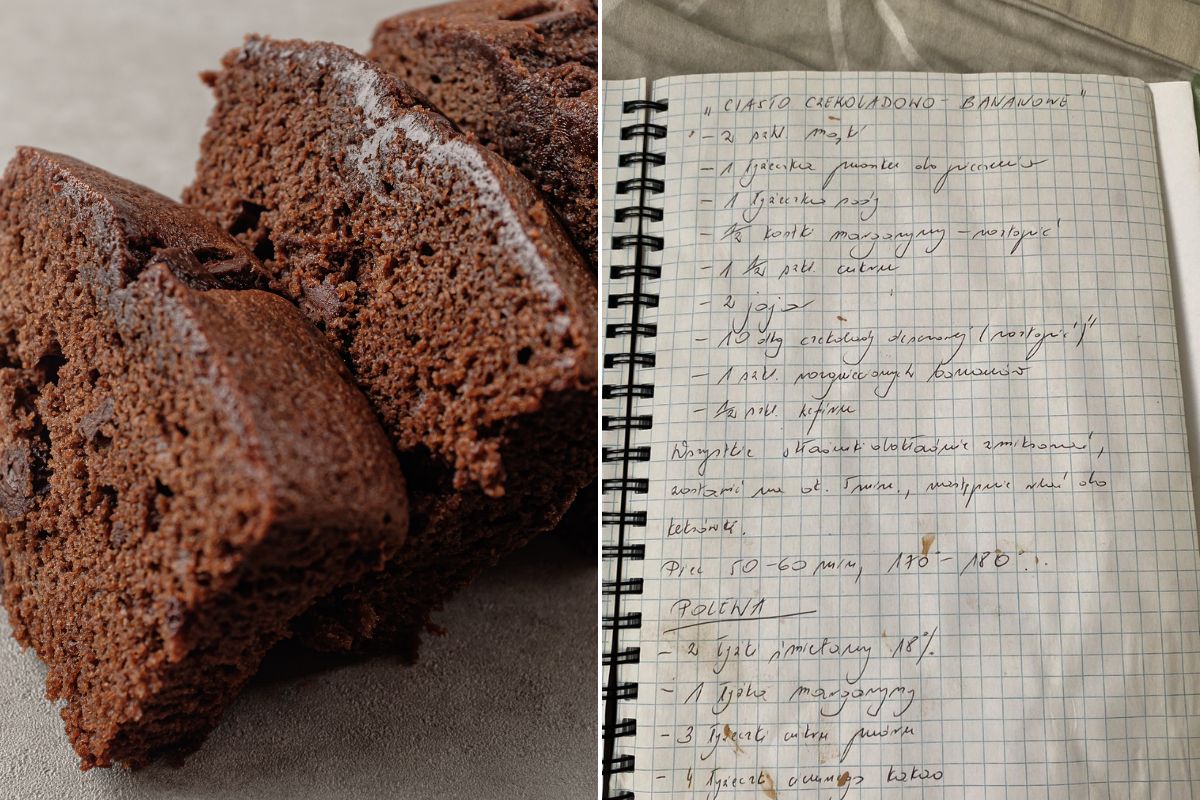 „CIASTO CZEKOLADOWO - BANANOWE"
- 2 szkl. mąki
- 1 łyżeczka proszku do pieczenia
- 1 łyżeczka sody
- 1/2 kostki margaryny - roztopić
- 1 1/2 szkl. cukru
- 2 jaja
- 10 dkg czekolady deserowej (roztopić)
- 1 szkl. rozgniecionych bananów
- 1/2 szkl. kefiru
Wszystkie składniki dokładnie zmiksować,
zostawić na ok. 5 min., następnie wlać do
keksówki.
Piec 50-60 min, 170°-180°.
POLEWA
- 2 łyżki śmietany 18%
- 1 łyżka margaryny
- 3 łyżeczki cukru pudru
- 4 łyżeczki ciemnego kakao